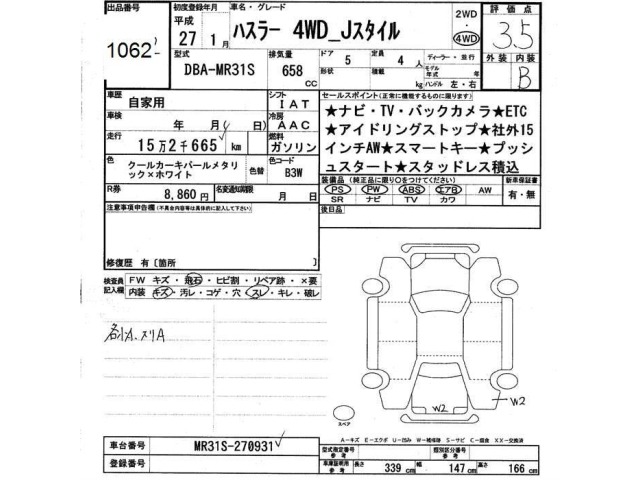 出品番号 初度登録年月 車名・グレード 2WD 評価点
1062 平成 27年 1月 ハスラー 4WD_Jスタイル 4WD 3.5
型式 排気量 ドア 5 定員 4人 ディーラー・並行 外装 内装
DBA-MR31S 658 CC 形状 積載 kg モデル年式 年 ハンドル 左・右 B
車歴 自家用 シフト IAT セールスポイント(正常に機能するものに限ります)
車検 年 月( 日) 冷房 AAC ★ナビ・TV・バックカメラ★ETC
走行 15万2千665 km 燃料 ガソリン ★アイドリングストップ★社外15
色 クールカーキパールメタリ 色替 色コード インチAW★スマートキー★プッシ
ック×ホワイト B3W ュスタート★スタッドレス積込
R券 8,860円 名変通知期限 月 日 装備品 (純正品に限り○をつけてください) 新車保証書
PS PW ABS エアB AW 有・無
SR ナビ TV カワ
注意事項申告欄(不具合内容等は具体的に記入して下さい) 後日品
修復歴 有〔箇所 〕
検査員記入欄 FW キズ・飛石・ヒビ割・リペア跡・×要
内装 キズ・汚レ・コゲ・穴・スレ・キレ・破レ
W2
W2
スペア
A-キズ E-エクボ U-凹み W-補修跡 S-サビ C-腐食 XX-交換済
車台番号 MR31S-270931 型式指定番号 参考 類別区分番号 参考
登録番号 車庫証明用 参考 長さ 339 cm 幅 147 cm 高さ 166 cm